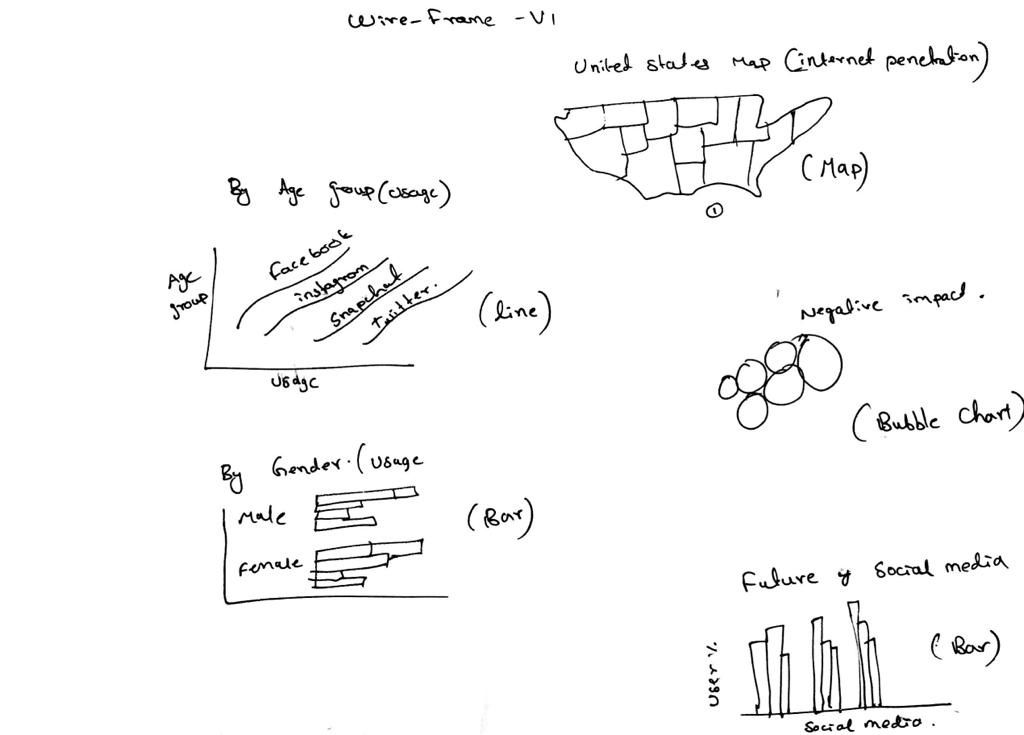 Wire-Frame - V1
United states Map (internet penetration)
(Map)
①
By Age group (Usage)
Age
group
Facebook
instagram
Snapchat
twitter.
Usage
(line)
Negative impact.
(Bubble Chart)
By Gender. (Usage
Male
Female
(Bar)
Future of Social media
User %
(Bar)
Social media.